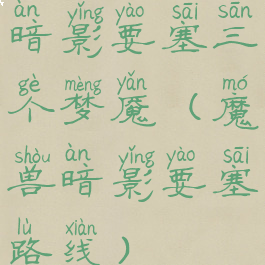 àn yǐng yào sāi sān
暗影要塞三
gè mèng yǎn mó
个梦魇（魔
shòu àn yǐng yào sāi
兽暗影要塞
lù xiàn
路线）